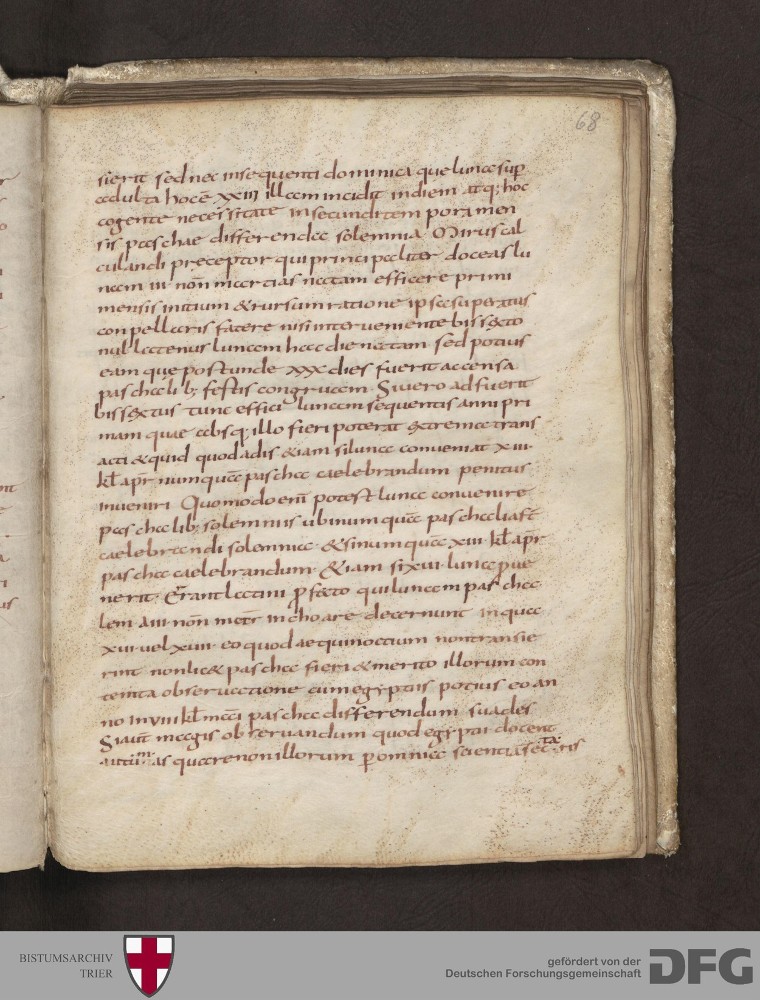 68
sierit sed nec insequenti dominica que luna sup
adulta hoc ē xxiii illam incidit in diem atq; hoc
cogente necessitate in secunditem pora men
sis paschae differenda solemnia Mirus cal
culandi preceptor qui principaliter doceas lu
nam iii non martias natam efficere primi
mensis initium & rursum ratione ipsa superatus
conpellaris fatere nisi interveniente bissexto
nullatenus lunam hac die natam sed potius
eam que postunde xxx dies fuerit accensa
paschalib; festis congruam. Si vero ad fuerit
bissextus tunc effici lunam sequentis anni pri
mam quae absq; illo fieri poterat extrema trans
acti & quid quod adis etiam si luna conveniat xiii
kł apr numquā pascha caelebrandum penitus
inveniri. Quomodo enī potest luna convenire
paschalib; solemniis ubi numquā paschali afł
caelebrandi solemnia & si numquā xiii kł apr
pascha caelebrandum. & iam si xvi luna pvve
nerit. Errant latini pfecto qui lunam pascha
lem a iii non mart inchoare decernunt in qua
xvi vel xviii eo quod aequinoctium non transie
rint non licet pascha fieri & merito illorum con
temta observatione cum egyptiis potius eo an
no in viii kł mai pascha differendum suades
Si aut magis observandum quod egyptii docent
autumas quare non illorum p omnia scientia sectaris
BISTUMSARCHIV
TRIER
gefördert von der
Deutschen Forschungsgemeinschaft
DFG